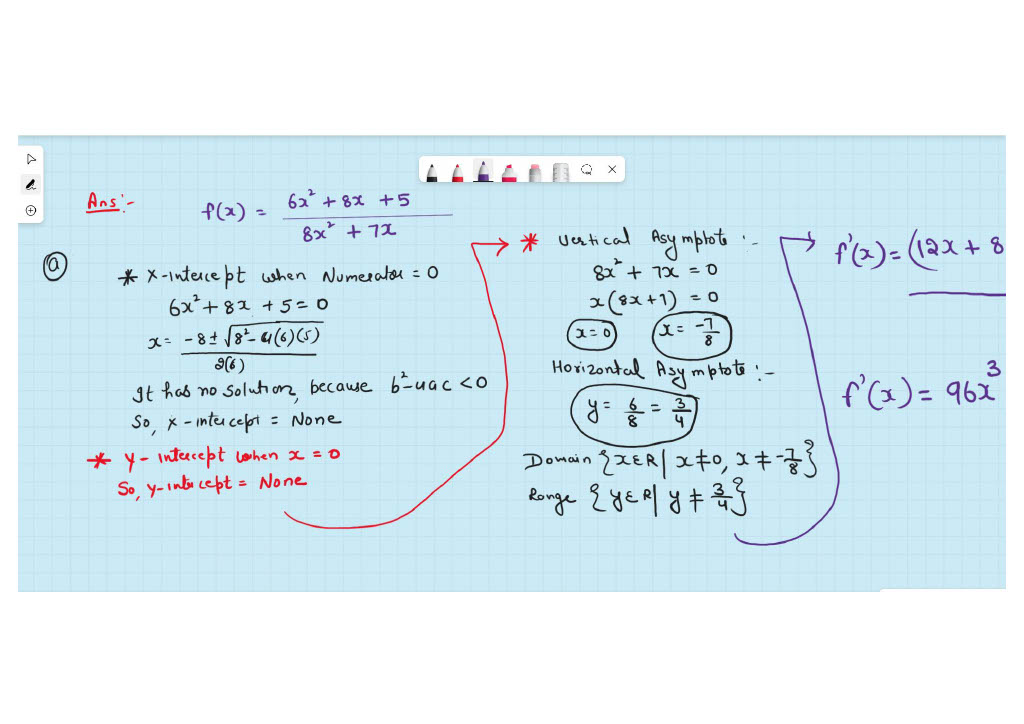 Ans:-
f(x) = (6x² + 8x + 5)/(8x² + 7x)
(a)
* X-intercept when Numerator = 0
6x² + 8x + 5 = 0
x = (-8 ± √(8² - 4(6)(5)))/(2(6))
It has no solution, because b²-4ac < 0
So, x-intercept = None
* Y-intercept when x = 0
So, y-intercept = None
* Vertical Asymptote :-
8x² + 7x = 0
x(8x+7) = 0
x = 0 x = -7/8
Horizontal Asymptote :-
y = 6/8 = 3/4
Domain {x∈R | x≠0, x≠-7/8}
Range {y∈R | y ≠ 3/4}
f'(x) = (12x + 8
f'(x) = 96x³